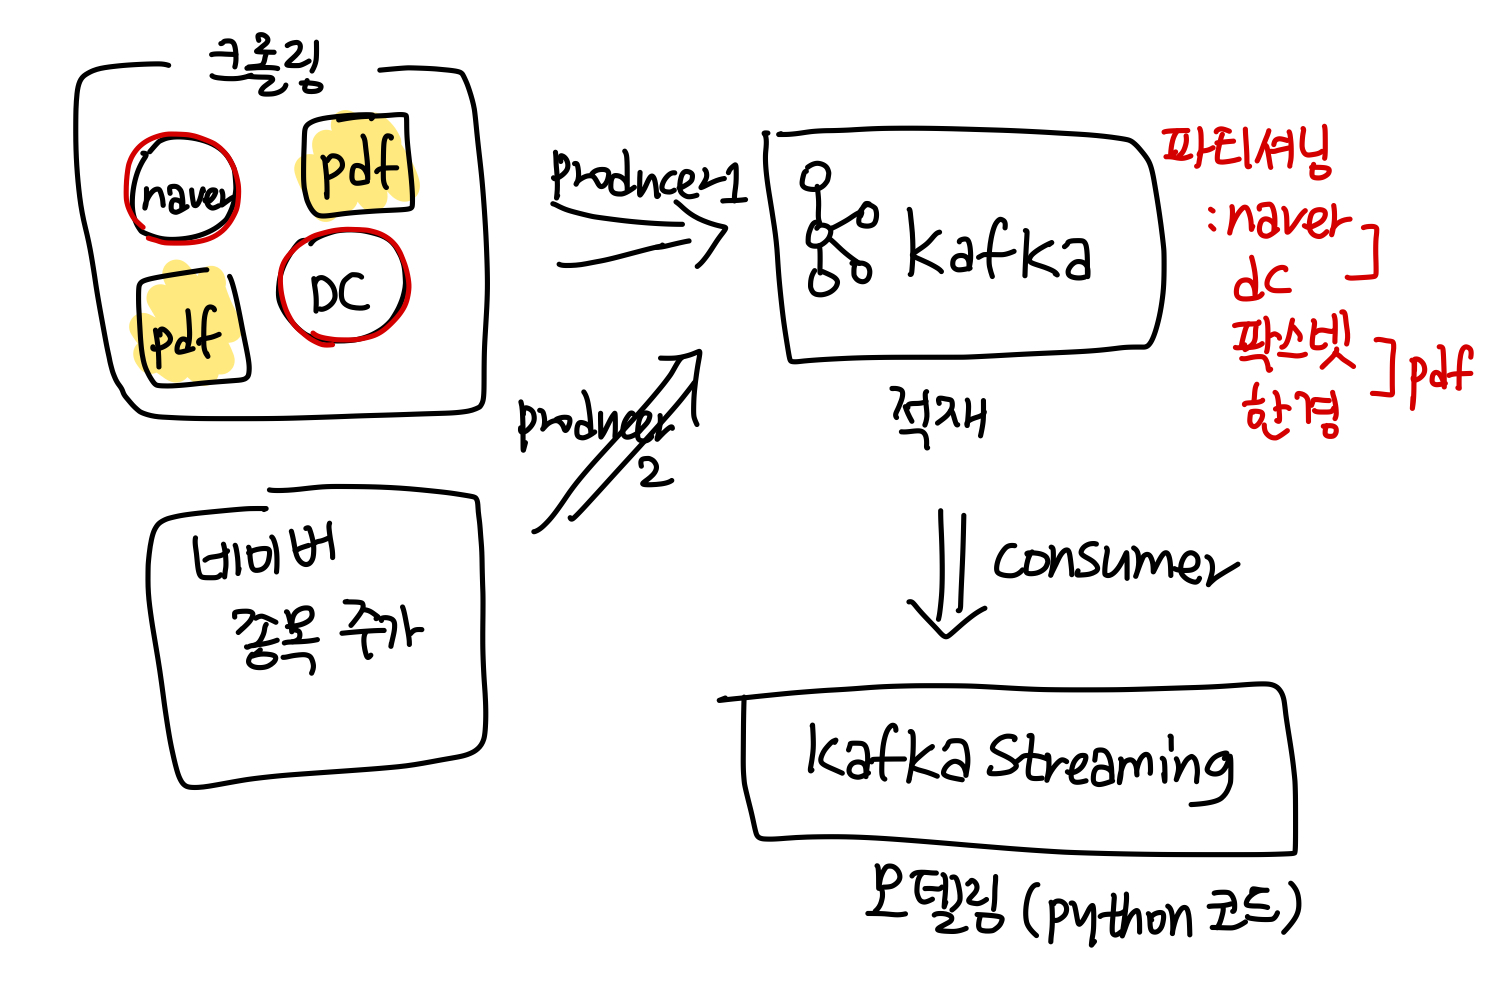 크롤링
naver
pdf
pdf
DC
producer1
producer
2
Kafka
적재
파티셔닝
:naver
dc
팍스넷
한경
pdf
네이버
종목 주가
consumer
Kafka Streaming
모델링 (python 코드)